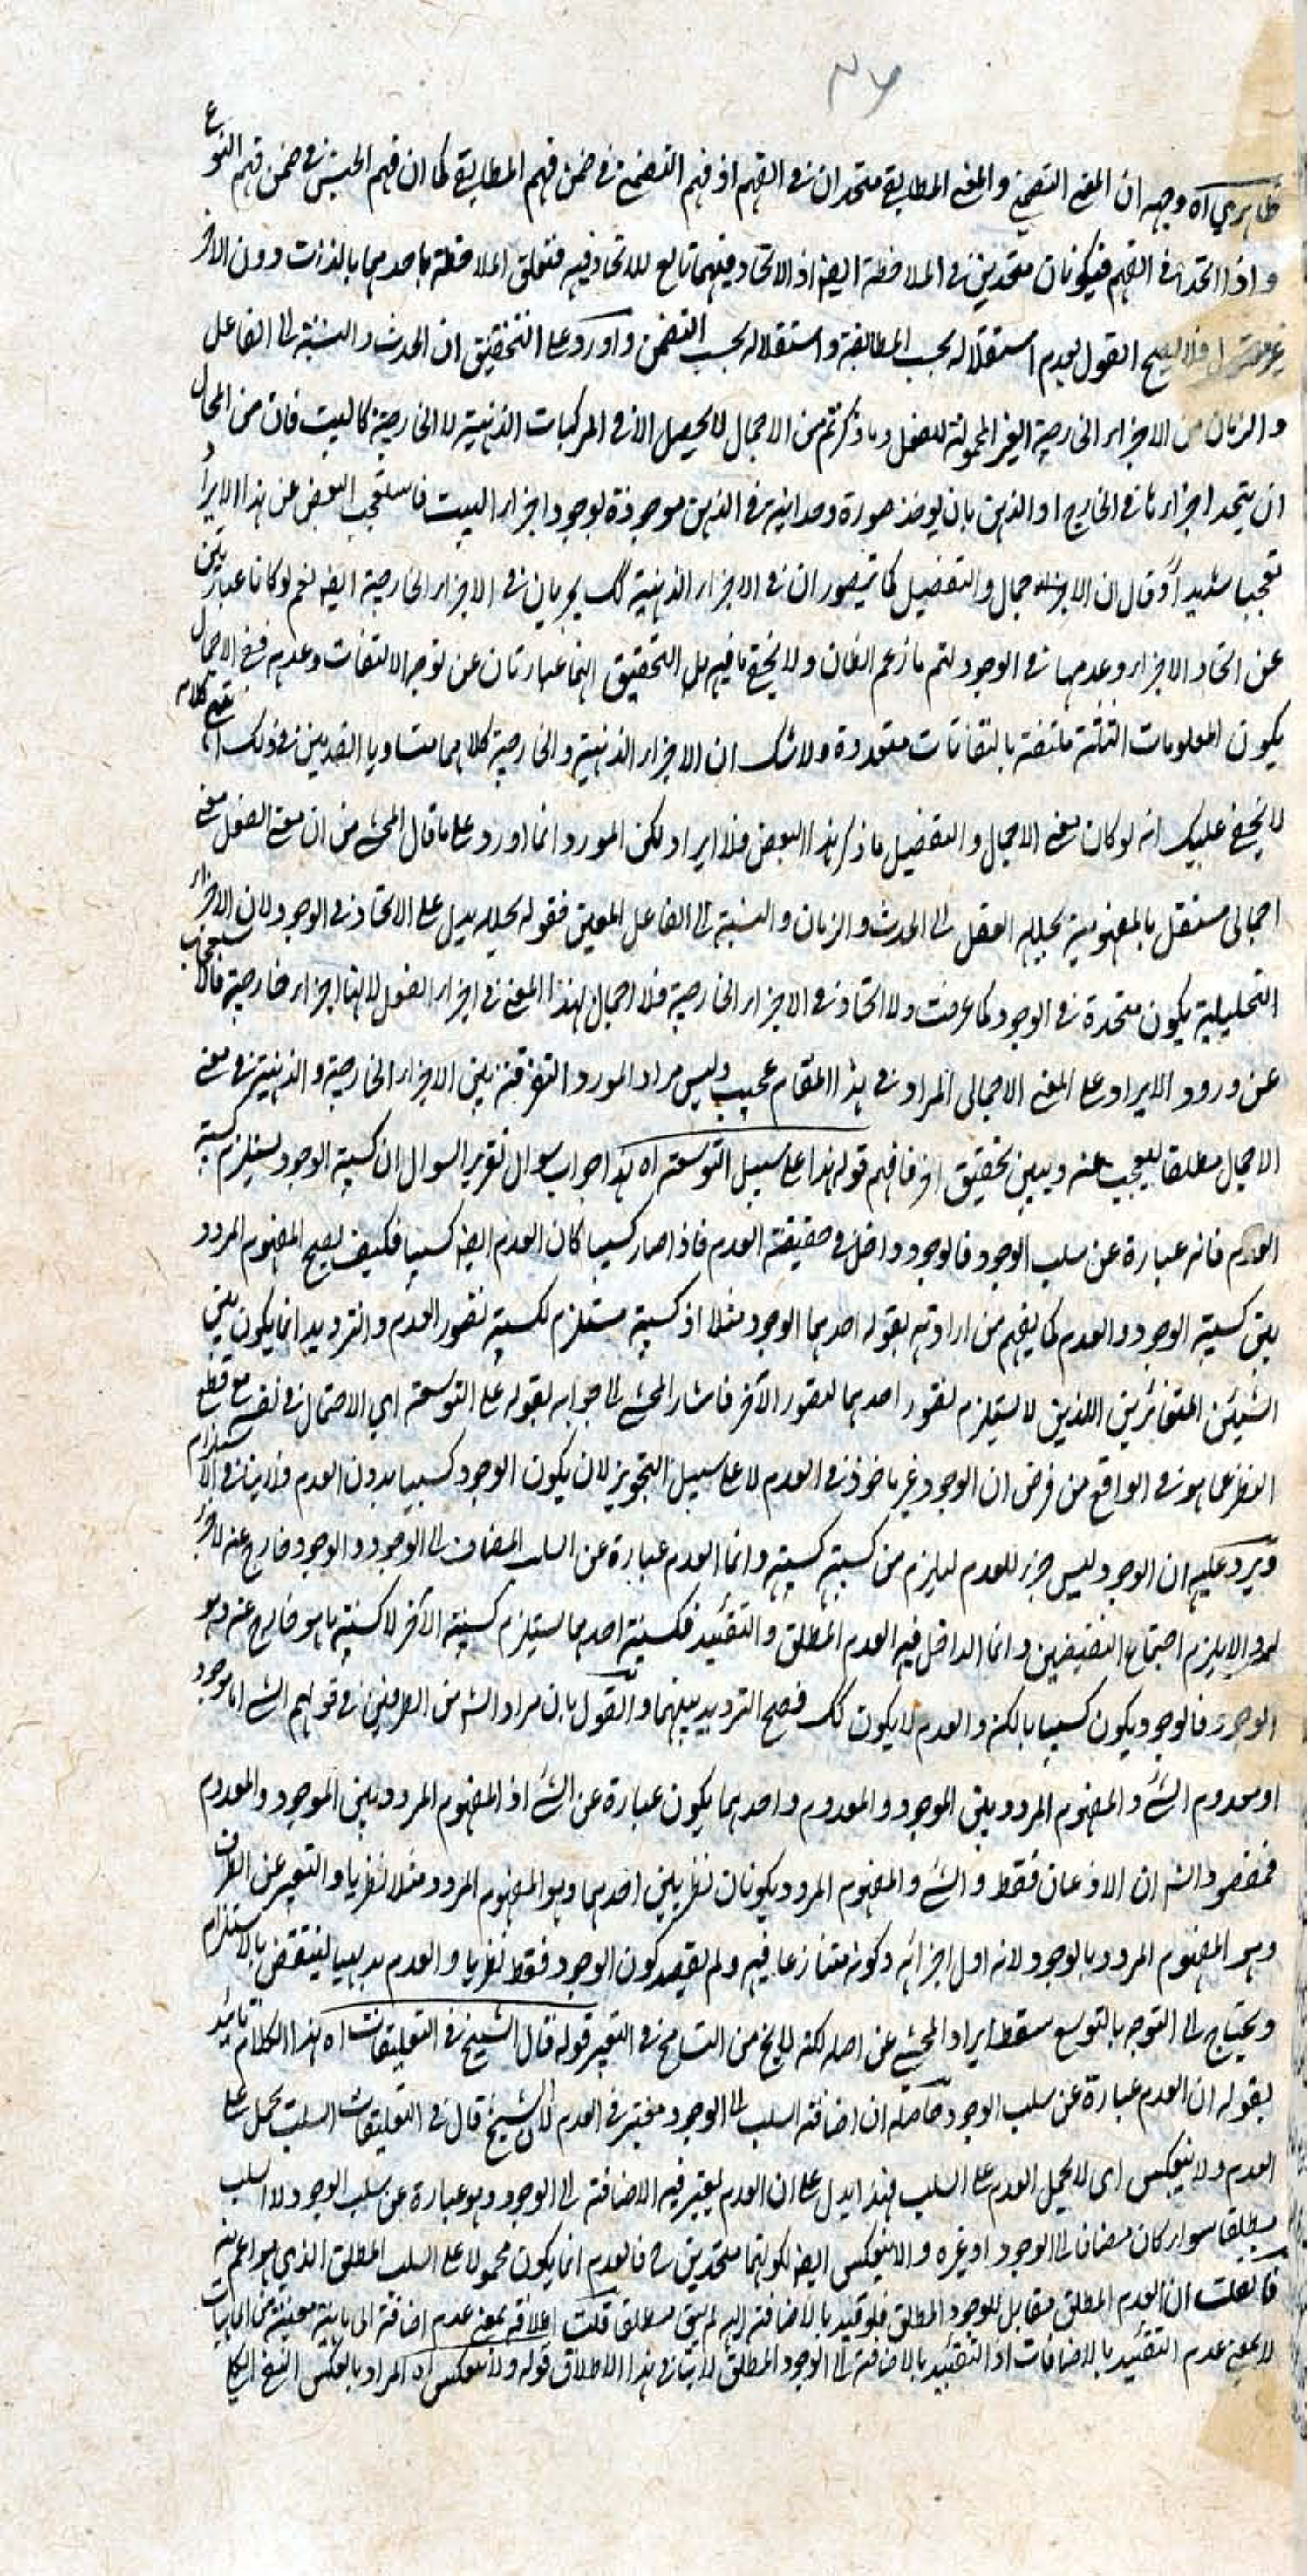 ٣٦
ظاهري اه وجهه ان المعنى التضمني والمعنى المطابقي متحدان في الفهم اذ فهم التضمني في ضمن فهم المطابقي كما ان فهم الجنس في ضمن فهم النوع
واذا اتحدا في الفهم فيكونان متحدين في الملاحظة ايضا اذ الاتحاد فيهما تابع للاتحاد فيه فتعلق الملاحظة باحدهما بالذات دون الاخر
غير معقول فلا يصح القول بعدم استقلاله بحسب المطابقة واستقلاله بحسب التضمن واورد على التحقيق ان الحدث والنسبة الى الفاعل
والزمان من الاجزاء الخارجية الغير المحمولة للفعل وما ذكرتم من الاجمال لا يحصل الا في المركبات الذهنية لا الخارجية كالبيت فان من المحال
ان يتحد اجزاءها في الخارج او الذهن بان يوخذ صورة وحدانية في الذهن موجودة لوجود اجزاء البيت فاستعجب البعض عن هذا الايراد
تعجبا شديدا وقال ان الاجمال والتفصيل كما يتصوران في الاجزاء الذهنية كك يجريان في الاجزاء الخارجية ايضا نعم لو كانا عبارتين
عن اتحاد الاجزاء وعدمها في الوجود لتم ما زعم الظان ولا يخفى ما فيه بل التحقيق انهما عبارتان عن توجه الالتفات وعدمه ففي الاجمال
يكون المعلومات الثلثة ملتفتة بالتفاتات متعددة ولا شك ان الاجزاء الذهنية والخارجية كلاهما متساويا القدمين في ذلك انتهى كلامه
لا يخفى عليك انه لو كان معنى الاجمال والتفصيل ما ذكر هذا البعض فلا ايراد لكن المورد انما اورد على ما قال المحشي من ان معنى الفعل معنى
اجمالي مستقل بالمفهومية يحلله العقل الى الحدث والزمان والنسبة الى الفاعل المعين فقوله يحلله يدل على الاتحاد في الوجود لان الاجزاء
التحليلية يكون متحدة في الوجود كما عرفت ولا اتحاد في الاجزاء الخارجية فلا اجمال بهذا المعنى في اجزاء الفعل لانها اجزاء خارجية فالاستعجاب
عن ورود الايراد على المعنى الاجمالي المراد في هذا المقام عجيب وليس مراد المورد التفرقة بين الاجزاء الخارجية والذهنية في معنى
الاجمال مطلقا ليعجب عنه ويبين تحقيق اخر فافهم قوله هذا على سبيل التوسعة اه هذا جواب سوال تقرير السوال ان كسبية الوجود يستلزم كسبية
العدم فانه عبارة عن سلب الوجود فالوجود داخل في حقيقة العدم فاذا صار كسبيا كان العدم ايضا كسبيا فكيف يصح المفهوم المردد
بين كسبية الوجود والعدم كما يفهم من ارادته بقوله احدهما الوجود مثلا اذ كسبية مستلزم لكسبية تصور العدم والترديد انما يكون بين
الشيئين المتغائرين اللذين لا يستلزم تصور احدهما لتصور الآخر فاشار المحشي الى جوابه بقوله على التوسعة اي الاحتمال في نفسه مع قطع
النظر عما هو في الواقع من فرض ان الوجود غير ماخوذ في العدم لا على سبيل التجويز لان يكون الوجود كسبيا بدون العدم فلا ينافي الاستلزام
ويرد عليه ان الوجود ليس جزء للعدم ليلزم من كسبيته كسبيته وانما العدم عبارة عن السلب المضاف الى الوجود والوجود خارج عنه لا جزء
له والا يلزم اجتماع النقيضين وانما الداخل فيه العدم المطلق والتقييد فكسبية احدهما يستلزم كسبية الآخر لا كسبية ما هو خارج عنه وهو
الوجود فالوجود يكون كسبيا بالكنه والعدم لا يكون كك فصح الترديد بينهما والقول بان مراد الشه من الطرفين في قولهم الشئ اما موجود
او معدوم الشئ والمفهوم المردد بين الموجود والمعدوم واحدهما يكون عبارة عن الشئ اذ المفهوم المردد بين الموجود والمعدوم
فمقصود الشه ان الاذعان فقط والشئ والمفهوم المردد يكونان نظريين احدهما وهو المفهوم المردد مثلا نظريا والتعبير عن الطرف
وهو المفهوم المردد بالوجود لانه اول اجزائه وكونه متنازعا فيه ولم يقصد كون الوجود فقط نظريا والعدم بديهيا لينتقض بالاستلزام
ويحتاج الى التوجه بالتوسع سقط ايراد المحشي عن اصله لكنه لا يخ من التسامح في التعبير قوله قال الشيخ في التعليقات اه هذا الكلام تائيد
لقوله ان العدم عبارة عن سلب الوجود حاصله ان اضافة السلب الى الوجود معتبر في العدم لان الشيخ قال في التعليقات السلب يحمل على
العدم ولا ينعكس اى لا يحمل العدم على السلب فهذا يدل على ان العدم يعتبر فيه الاضافة الى الوجود وهو عبارة عن سلب الوجود لا السلب
مطلقا سواء كان مضافا الى الوجود او غيره والا ينعكس ايضا لكونهما متحدين ح فالعدم انما يكون محمولا على السلب المطلق الذي هو اعم منه
فان قلت ان العدم المطلق مقابل للوجود المطلق فلو قيد بالاضافة اليه لم يبق مطلقا قلت اطلاقه بمعنى عدم اضافته الى ماهية معينة من الماهيات
لا بمعنى عدم التقييد بالاضافات اذ التقييد بالاضافة الى الوجود المطلق لا ينافي هذا الاطلاق قوله ولا ينعكس اه المراد بالعكس النسخ الكلي